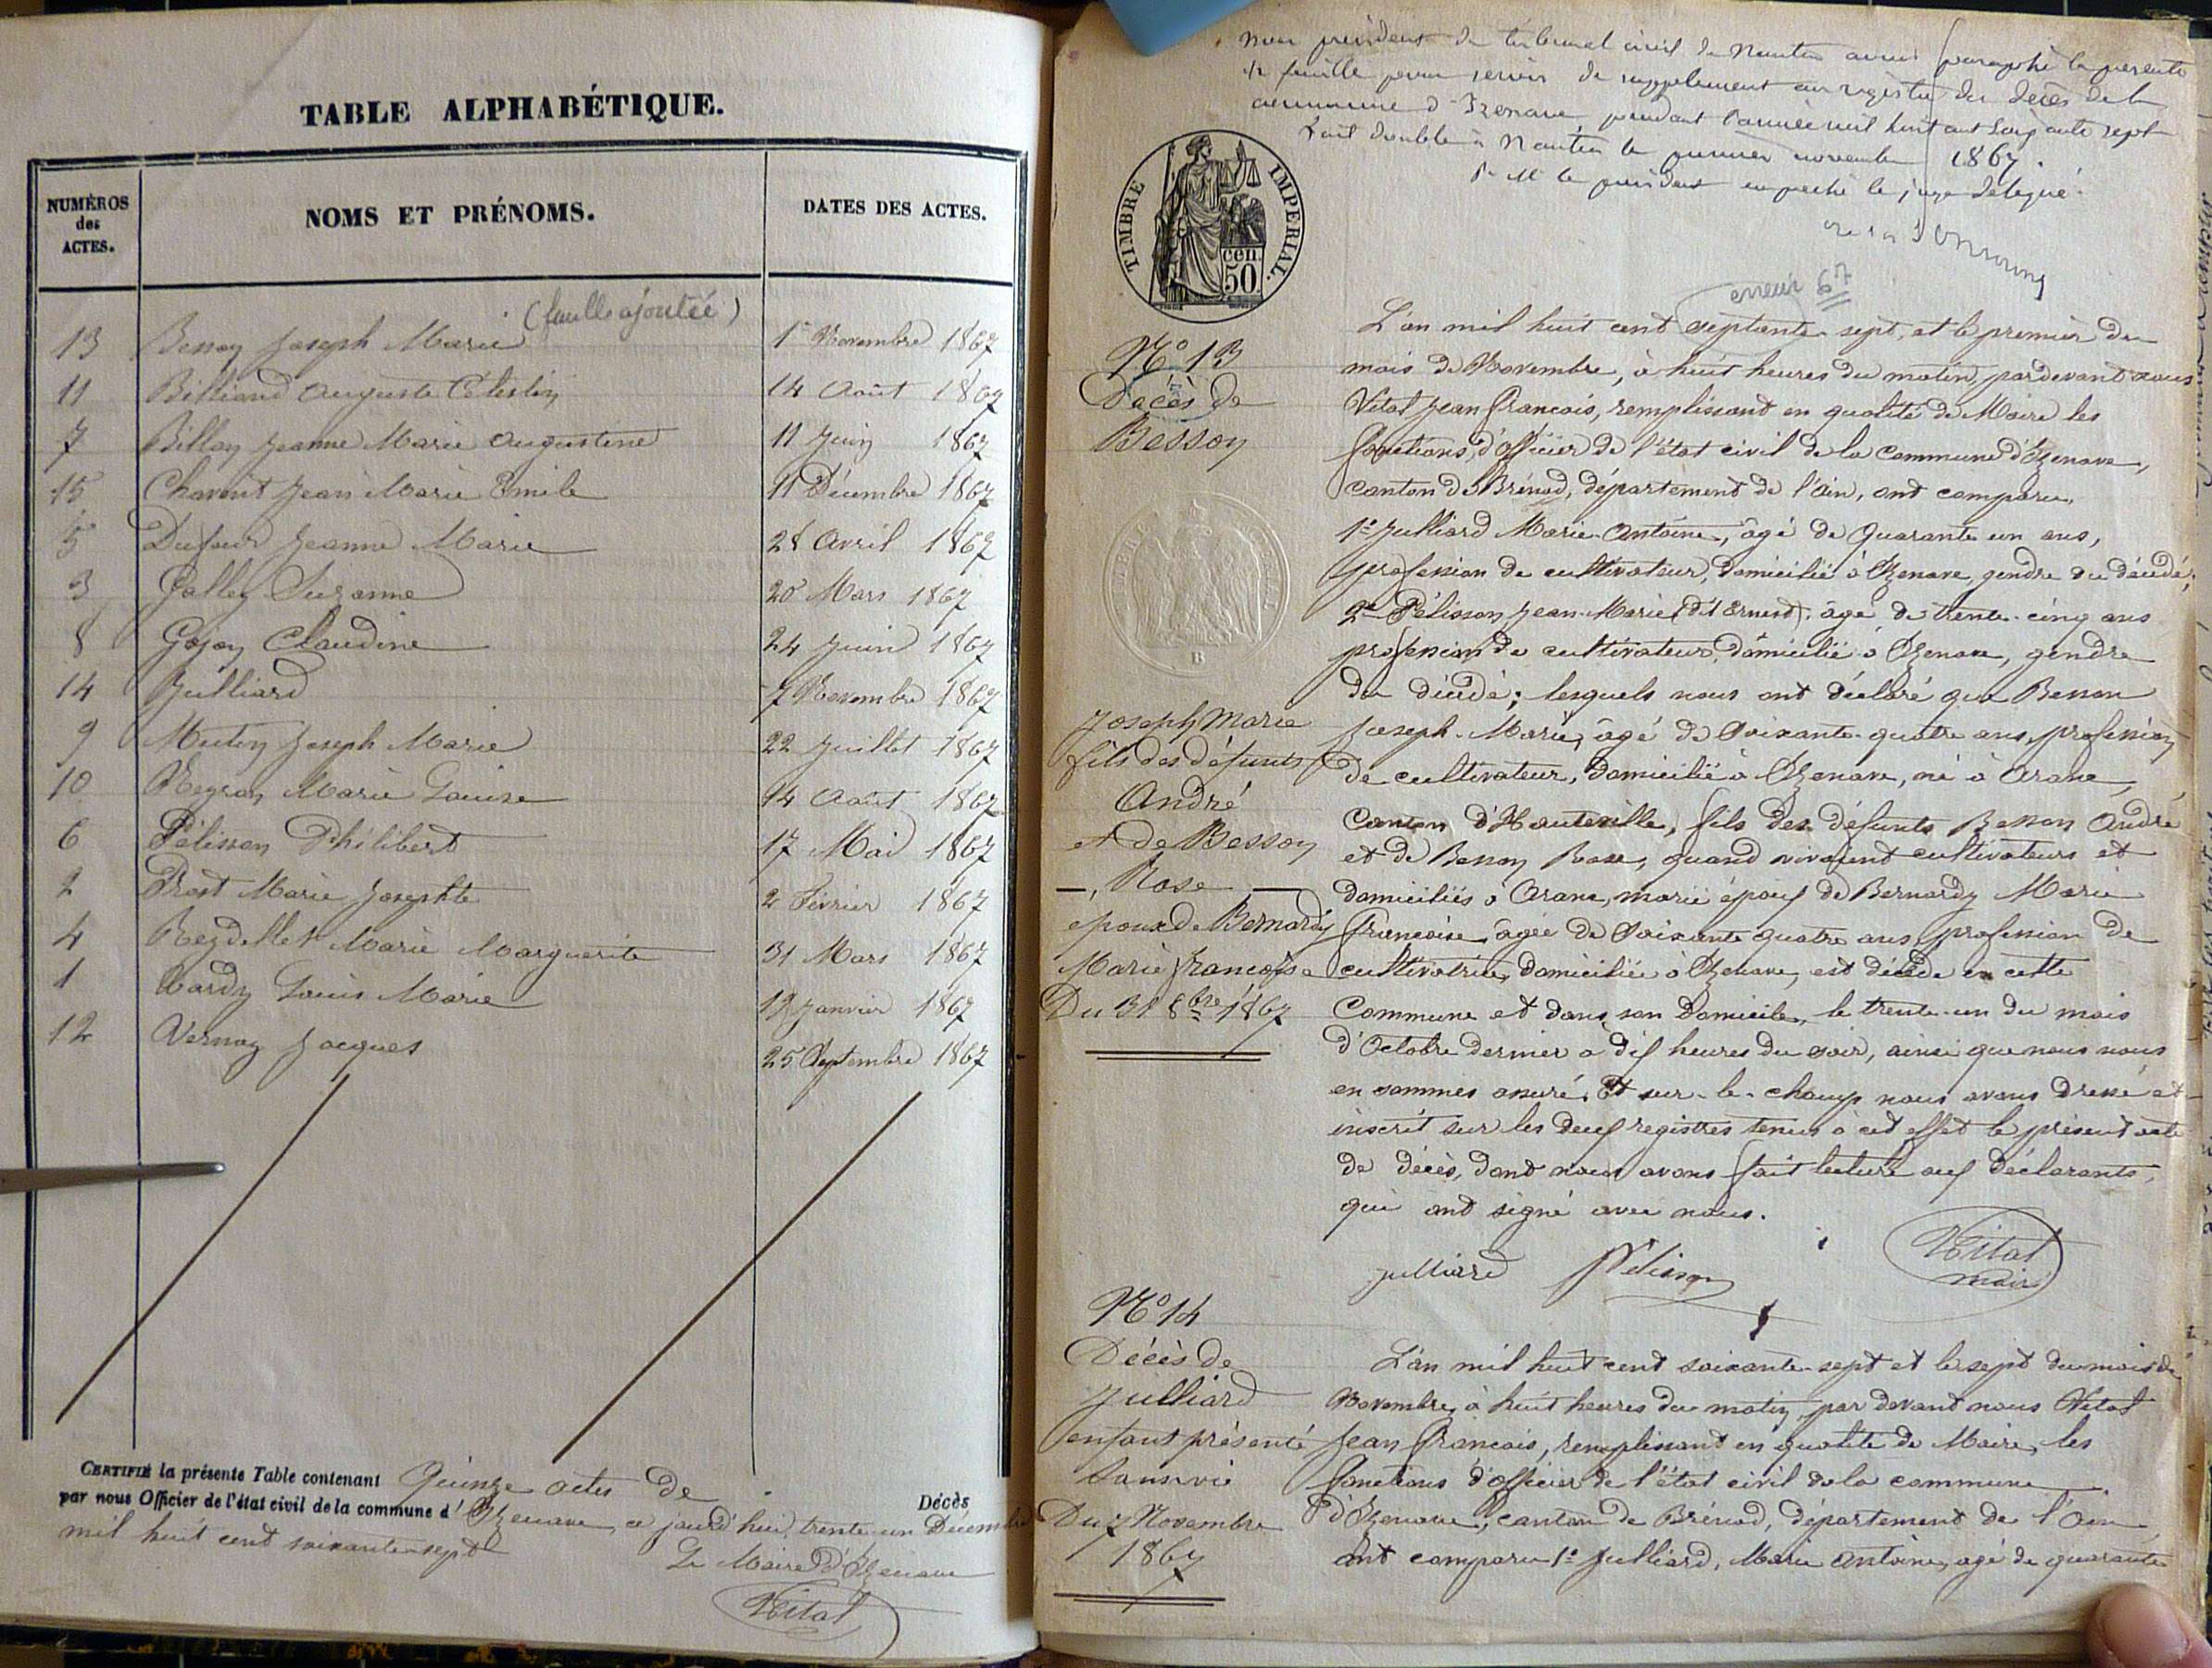 TABLE ALPHABÉTIQUE.
NUMÉROS
des
ACTES.
NOMS ET PRÉNOMS.
DATES DES ACTES.
(feuille ajoutée)
13 Besson Joseph Marie 1er Novembre 1867
11 Billiand Auguste Célestin 14 Août 1867
7 Billon Jeanne Marie Augustine 11 Juin 1867
15 Chavent Jean Marie Emile 11 Décembre 1867
5 Dufour Jeanne Marie 28 Avril 1867
3 Galley Suzanne 20 Mars 1867
8 Gojon Claudine 24 Juin 1867
14 Julliard 7 Novembre 1867
9 Mutin Joseph Marie 22 Juillet 1867
10 Neyron Marie Louise 14 Août 1867
6 Pélisson Philibert 17 Mai 1867
2 Prost Marie Josephte 2 Février 1867
4 Reydellet Marie Marguerite 31 Mars 1867
1 Tardy Louis Marie Janvier 1867
12 Vernay Jacques 25 Septembre 1867
CERTIFIÉ la présente Table contenant Quinze actes de Décès
par nous Officier de l'état civil de la commune d' Izenave, ce jourd'hui, trente-un Décembre
mil huit cent soixante-sept
Le Maire d'Izenave
Vital
Nous président du tribunal civil de Nantua avons paraphé la présente
1/2 feuille pour servir de supplément au registre des décès de la
commune d'Izenave pendant l'année mil huit cent soixante sept
Fait double à Nantua le premier novembre 1867.
Pr M le président empêché le juge délégué.
TIMBRE IMPÉRIAL.
50 cen.
erreur 67
N° 13
Décès de
Besson
Joseph Marie
fils des défunts
André
et de Besson
—, Rose —
époux de Bernardy
Marie françoise
Du 31 8bre 1867
L'an mil huit cent septante-sept, et le premier du
mois de Novembre, à huit heures du matin, pardevant nous
Vital Jean François, remplissant en qualité de Maire les
fonctions d'officier de l'état civil de la Commune d'Izenave,
canton de Brénod, département de l'Ain, ont comparu,
1° Julliard Marie-Antoine, âgé de Quarante un ans,
profession de cultivateur, domicilié à Izenave, gendre du décédé;
2° Pélisson Jean-Marie (dit Ernest), âgé de trente-cinq ans
profession de cultivateur, domicilié à Izenave, gendre
du décédé; lesquels nous ont déclaré que Besson
Joseph-Marie, âgé de Soixante-quatre ans, profession
de cultivateur, domicilié à Izenave, né à Arane,
Canton d'Hauteville, fils des défunts Besson André
et de Besson Rose, quand vivaient cultivateurs et
domiciliés à Arane, marié époux de Bernardy Marie
françoise, âgée de Soixante quatre ans, profession de
cultivatrice, domiciliée à Izenave, est décédé en cette
Commune et dans son Domicile, le trente-un du mois
d'Octobre dernier à dix heures du soir, ainsi que nous nous
en sommes assuré. Et sur-le-champ nous avons dressé et
inscrit sur les deux registres tenus à cet effet le présent acte
de décès, dont nous avons fait lecture aux déclarants,
qui ont signé avec nous.
Julliard Pélisson Vital
maire
N° 14
Décès de
Julliard
enfant présenté
sans vie
Du 7 Novembre
1867
L'an mil huit cent soixante-sept et le sept du mois de
Novembre, à huit heures du matin, par devant nous Vital
Jean François, remplissant en qualité de Maire, les
fonctions d'officier de l'état civil de la commune
d'Izenave, canton de Brénod, département de l'Ain
ont comparu 1° Julliard, Marie Antoine, âgé de quarante